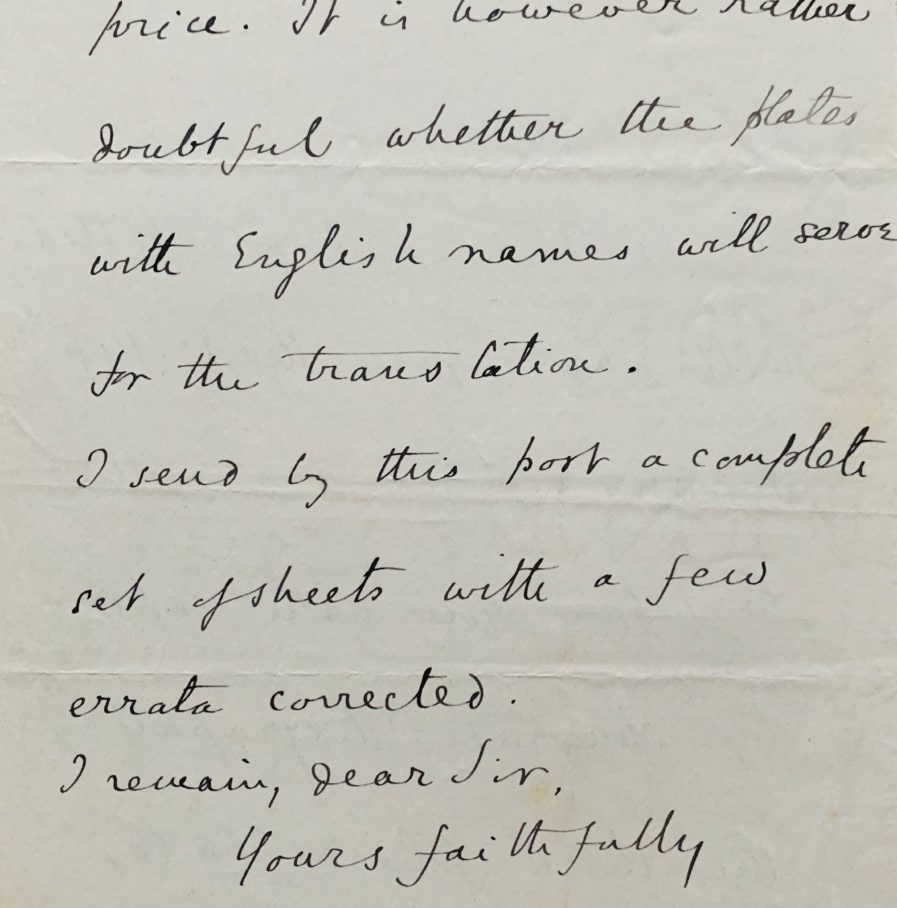 price. It is however rather
doubtful whether the plates
with English names will serve
for the translation.
I send by this post a complete
set of sheets with a few
errata corrected.
I remain, dear Sir,
Yours faithfully